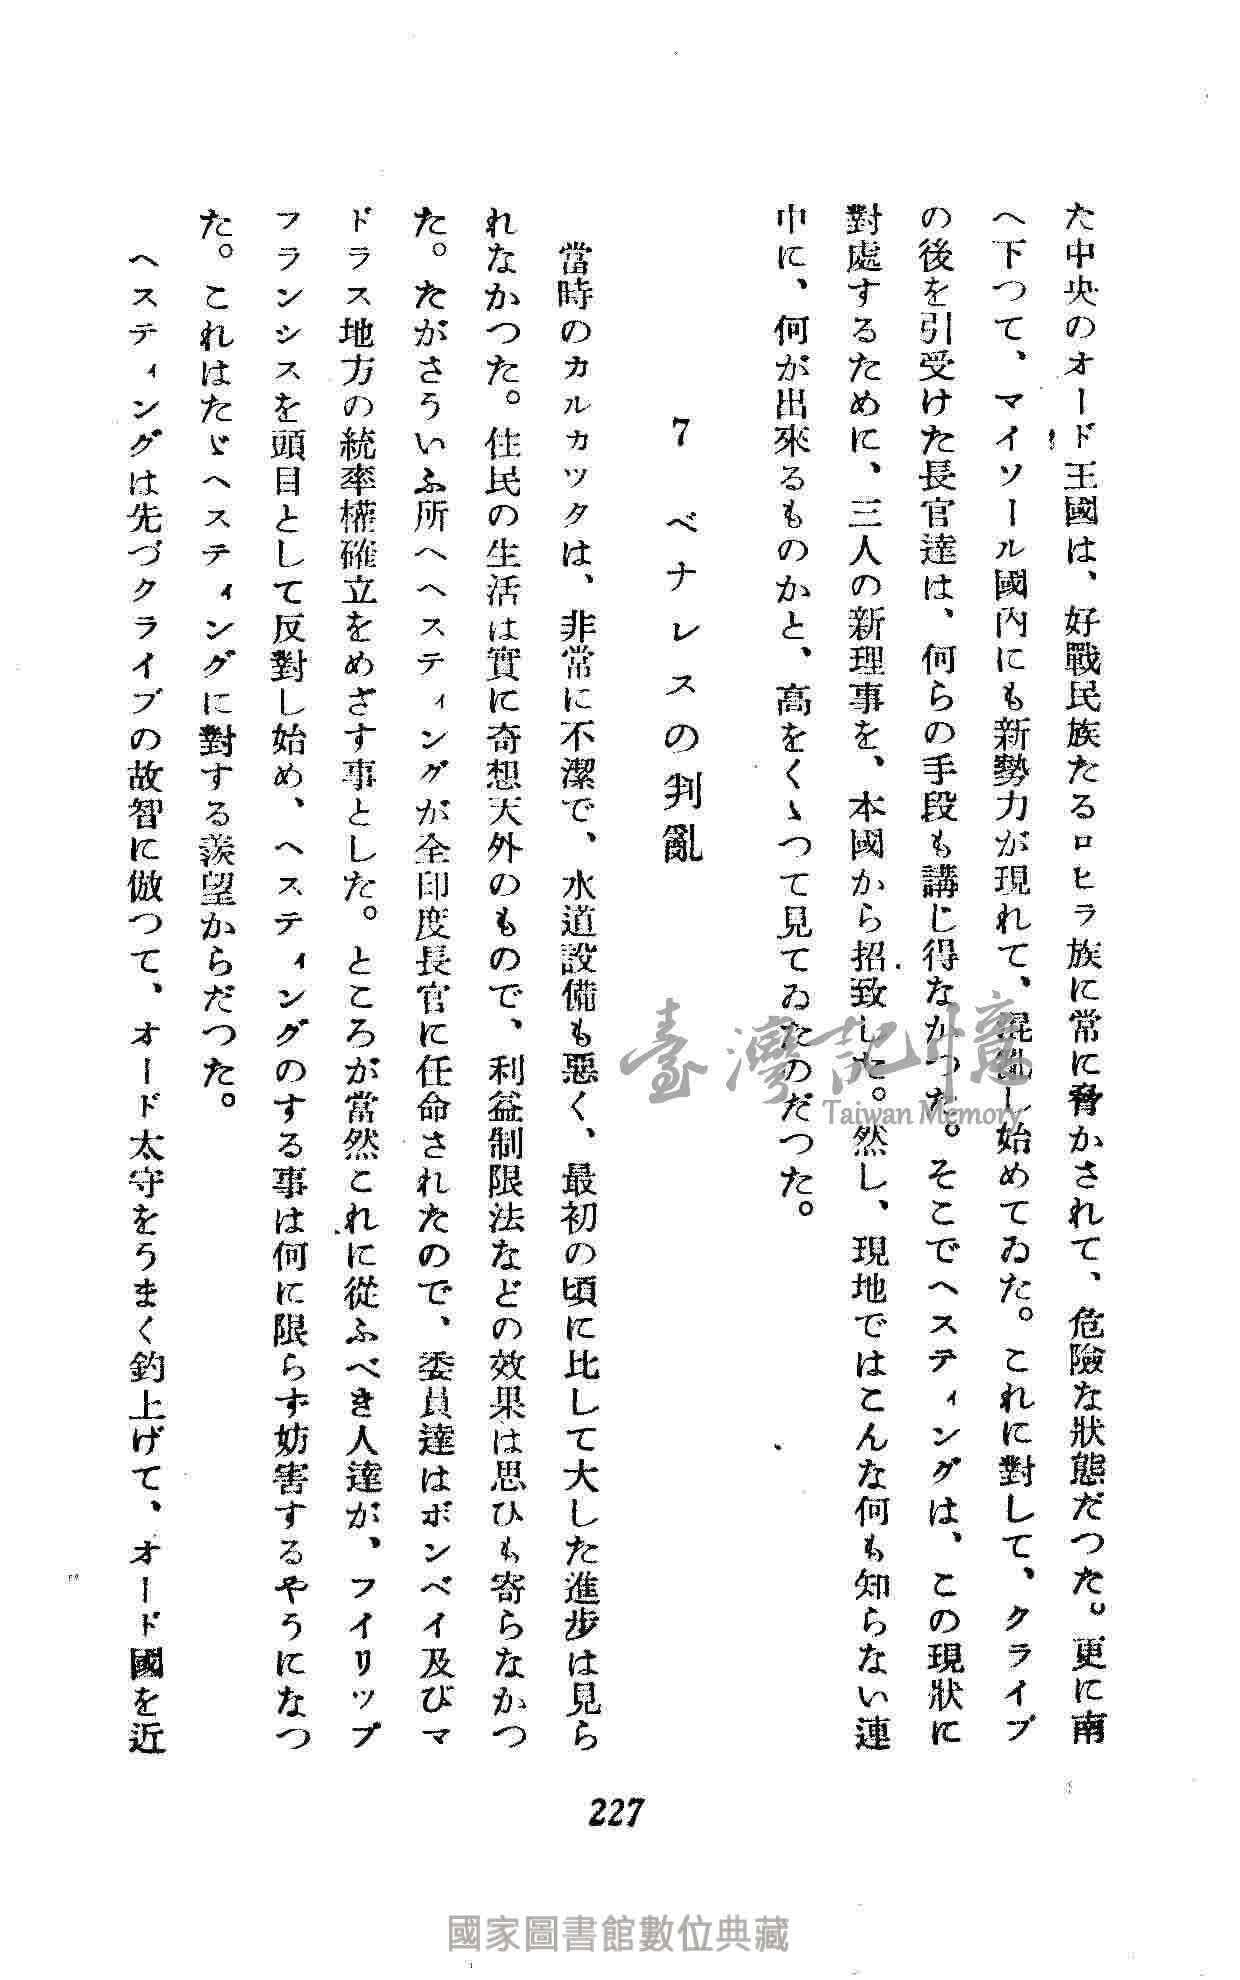 た中央のオード王國は、好戰民族たるロヒラ族に常に脅かされて、危險な狀態だつた。更に南
へ下つて、マイソール國內にも新勢力が現れて、混亂し始めてゐた。これに對して、クライブ
の後を引受けた長官達は、何らの手段も講じ得なかつた。そこでヘスティングは、この現狀に
對處するために、三人の新理事を、本國から招致した。然し、現地ではこんな何も知らない連
中に、何が出來るものかと、高をくゝつて見てゐたのだつた。
7 ベナレスの判亂
當時のカルカッタは、非常に不潔で、水道設備も惡く、最初の頃に比して大した進步は見ら
れなかつた。住民の生活は實に奇想天外のもので、利益制限法などの效果は思ひも寄らなかつ
た。たがさういふ所へヘスティングが全印度長官に任命されたので、委員達はボンベイ及びマ
ドラス地方の統率權確立をめざす事とした。ところが當然これに從ふべき人達が、フイリップ
フランシスを頭目として反對し始め、ヘスティングのする事は何に限らず妨害するやうになつ
た。これはたゞヘスティングに對する羨望からだつた。
ヘスティングは先づクライブの故智に倣つて、オード太守をうまく釣上げて、オード國を近
227
臺灣記憶
Taiwan Memory
國家圖書館數位典藏